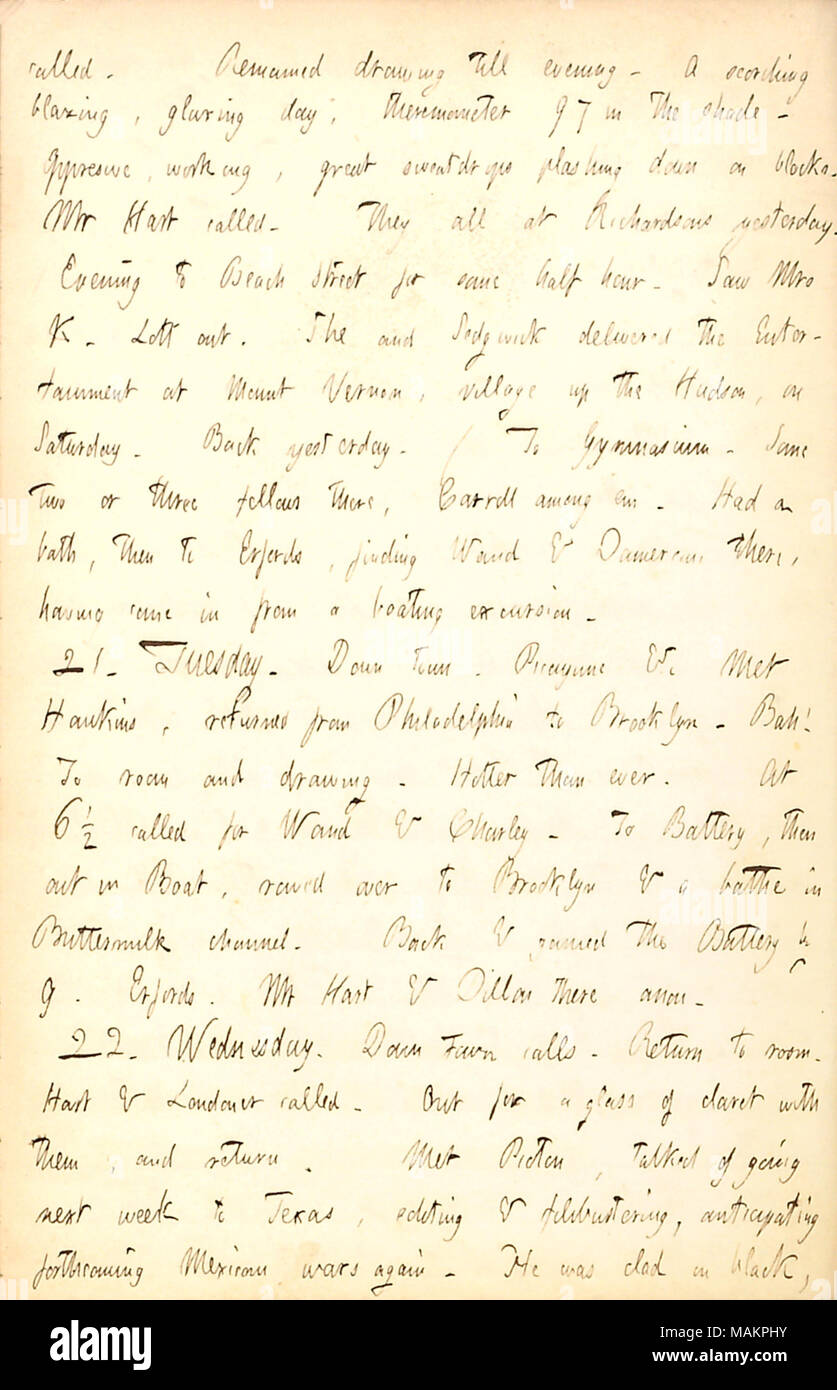 called. Remained drawing till evening. A scorching
blazing, glaring day, thermometer 97 in the shade -
Oppresive, working, great sweatdrops plashing down on blocks.
Mr Hart called. They all at Richardsons yesterday.
Evening to Beach Street for some half hour. Saw Mrs
K. Lott out. She and Sedgwick delivered the Enter-
tainment at Mount Vernon, village up the Hudson, on
Saturday. Back yesterday. / To Gymnasium. Some
two or three fellows there, Carroll among em. Had a
bath, then to Erfords, finding Waud & Damoreau there,
having come in from a boating excursion.
21. Tuesday. Down town. Picayune &c. Met
Hawkins, returned from Philadelphia to Brooklyn. Bah!
To room and drawing. Hotter than ever. At
6 1/2 called for Waud & Charley. To Battery, then
out in Boat, rowed over to Brooklyn & a bathe in
Buttermilk channel. Back & gained the Battery by
9. Erfords. Mr Hart & Dillon there anon.
22. Wednesday. Down town calls. Return to room.
Hart & Londoner called. Out for a glass of claret with
them, and return. Met Picton, talked of going
next week to Texas, editing & filibustering, anticipating
forthcoming Mexican wars again. He was clad in black,
alamy
Image ID: MAKPHY
www.alamy.com